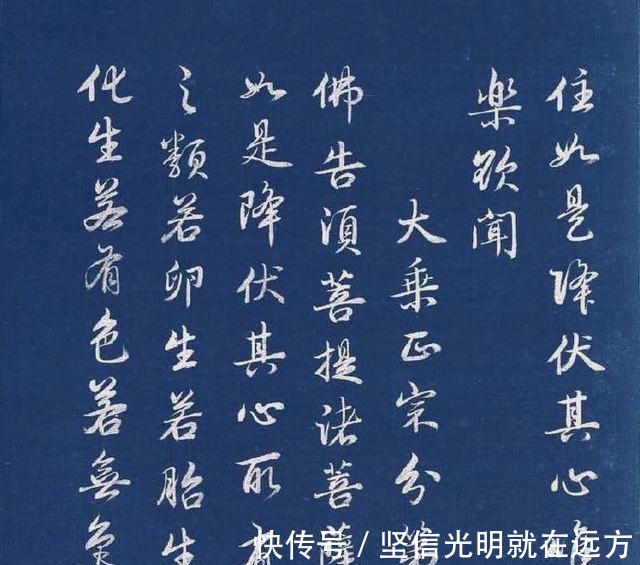 住如是降伏其心
樂欲聞
大乘正宗分第
佛告須菩提諸菩薩
如是降伏其心所有
之類若卵生若胎生
化生若有色若無色
快传号／坚信光明就在远方